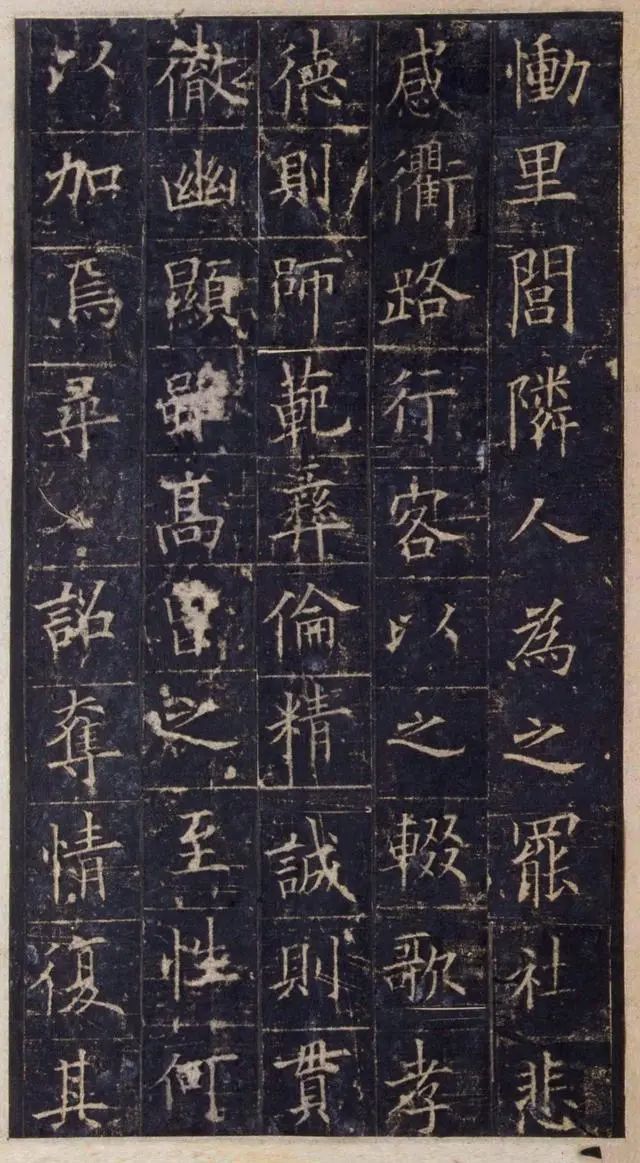 慟里閭隣人為之罷社悲
感衢路行客以之輟歌孝
德則師範彝倫精誠則貫
徹幽顯雖高曾之至性何
以加焉尋又詔奪情復其